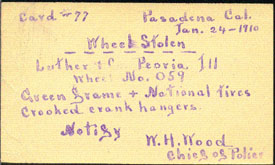 Card #77 Pasadena Cal.
Jan. 24-1910
Wheel Stolen
Luther & C Peoria Ill
Wheel No. 059
Green frame + National tires
Crooked crank hangers.
Notify W.H. Wood
Chief of Police